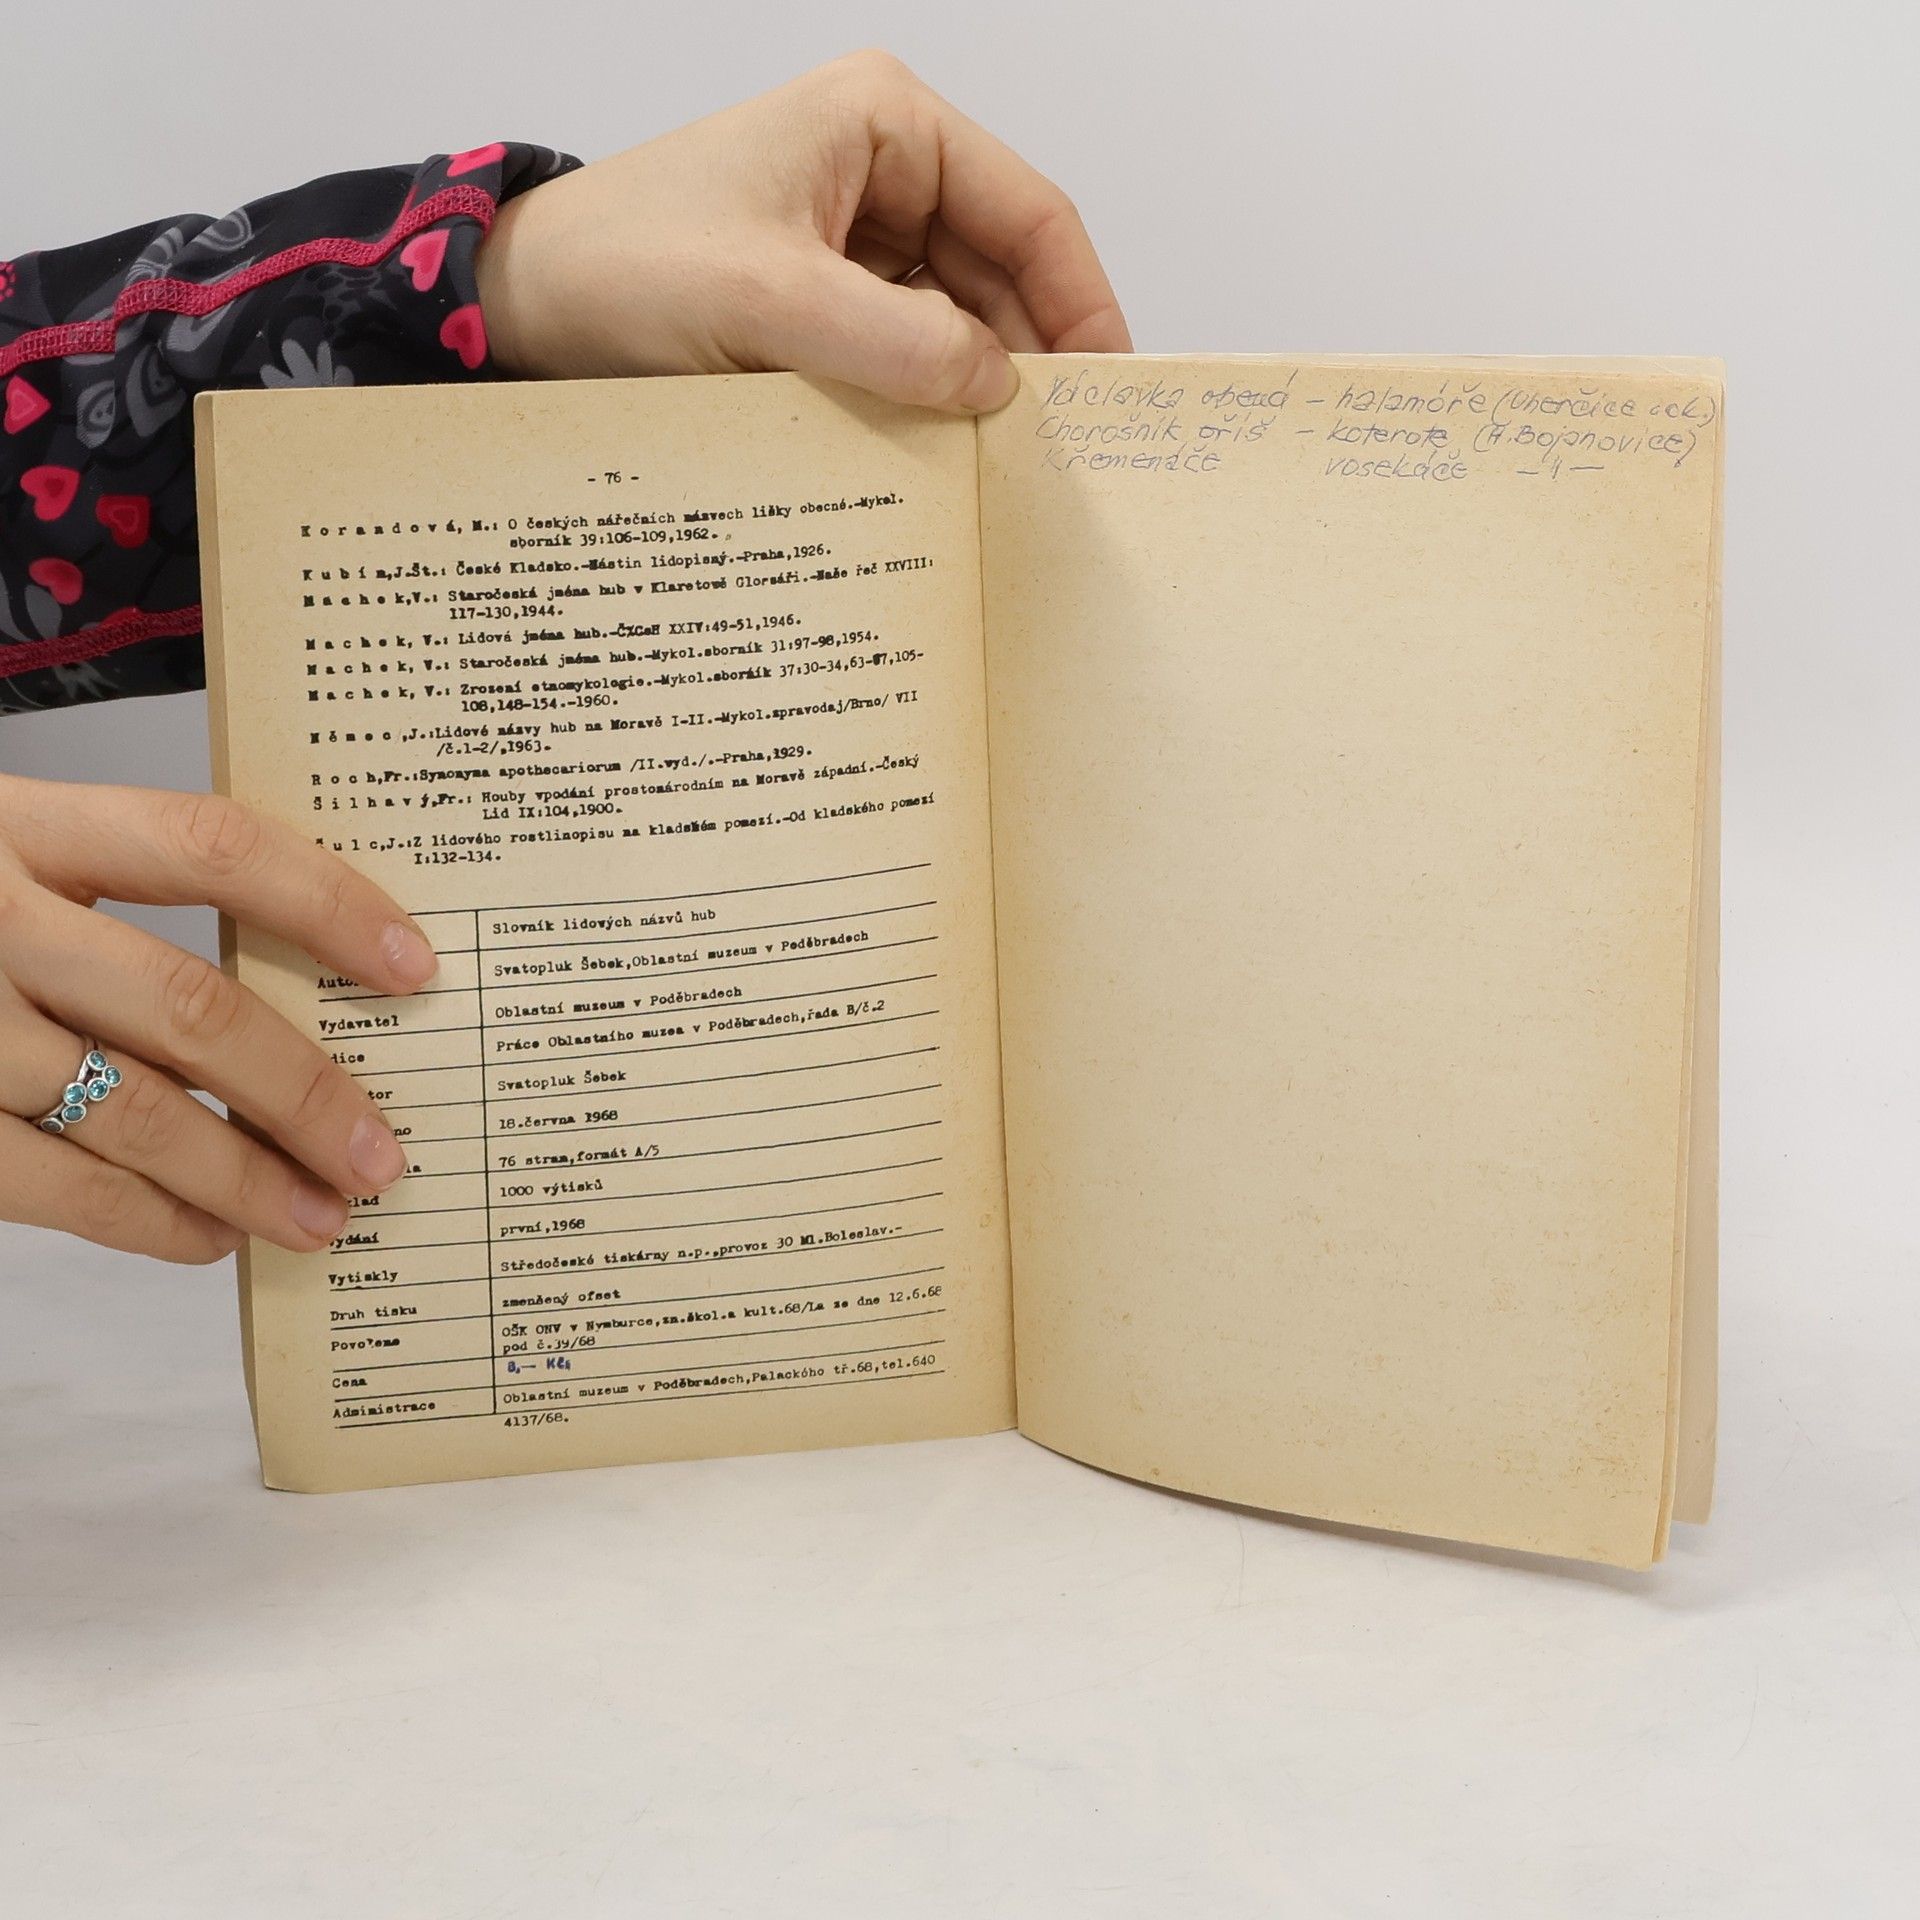 - 76 -
K o r a n d o v á, M.: O českých nářečních názvech lišky obecné.-Mykol.
sborník 39:106-109,1962.
K u b í n,J.Št.: České Kladsko.-Nástin lidopisný.-Praha,1926.
M a c h e k,V.: Staročeská jména hub v Klaretově Glosáři.-Naše řeč XXVIII:
117-130,1944.
M a c h e k, V.: Lidová jména hub.-ČČsH XXIV:49-51,1946.
M a c h e k, V.: Staročeská jména hub.-Mykol.sborník 31:97-98,1954.
M a c h e k, V.: Zrození etnomykologie.-Mykol.sborník 37:30-34,63-67,105-
108,148-154.-1960.
N ě m e c ,J.:Lidové názvy hub na Moravě I-II.-Mykol.zpravodaj/Brno/ VII
/č.1-2/,1963.
R o c h,Fr.:Synonyma apothecariorum /II.vyd./.-Praha,1929.
Š i l h a v ý,Fr.: Houby vpodání prostonárodním na Moravě západní.-Český
Lid IX:104,1900.
Š u l c,J.:Z lidového rostlinopisu na kladském pomezí.-Od kladského pomezí
I:132-134.
Slovník lidových názvů hub
Svatopluk Šebek,Oblastní muzeum v Poděbradech
Vydavatel Oblastní muzeum v Poděbradech
dice Práce Oblastního muzea v Poděbradech,řada B/č.2
tor Svatopluk Šebek
no 18.června 1968
la 76 stran,formát A/5
klad 1000 výtisků
ydání první,1968
Vytiskly Středočeské tiskárny n.p.,provoz 30 Ml.Boleslav.-
Druh tisku zmenšený ofset
Povoleno OŠK ONV v Nymburce,zn.škol.a kult.68/La ze dne 12.6.68
pod č.39/68
Cena 8,— Kčs
Administrace Oblastní muzeum v Poděbradech,Palackého tř.68,tel.640
4137/68.
Václavka obecná – halamóře (Uherčice ok.)
Chorošník oříš – koterote (H.Bojanovice)
Křemenáče vosekáče — " —